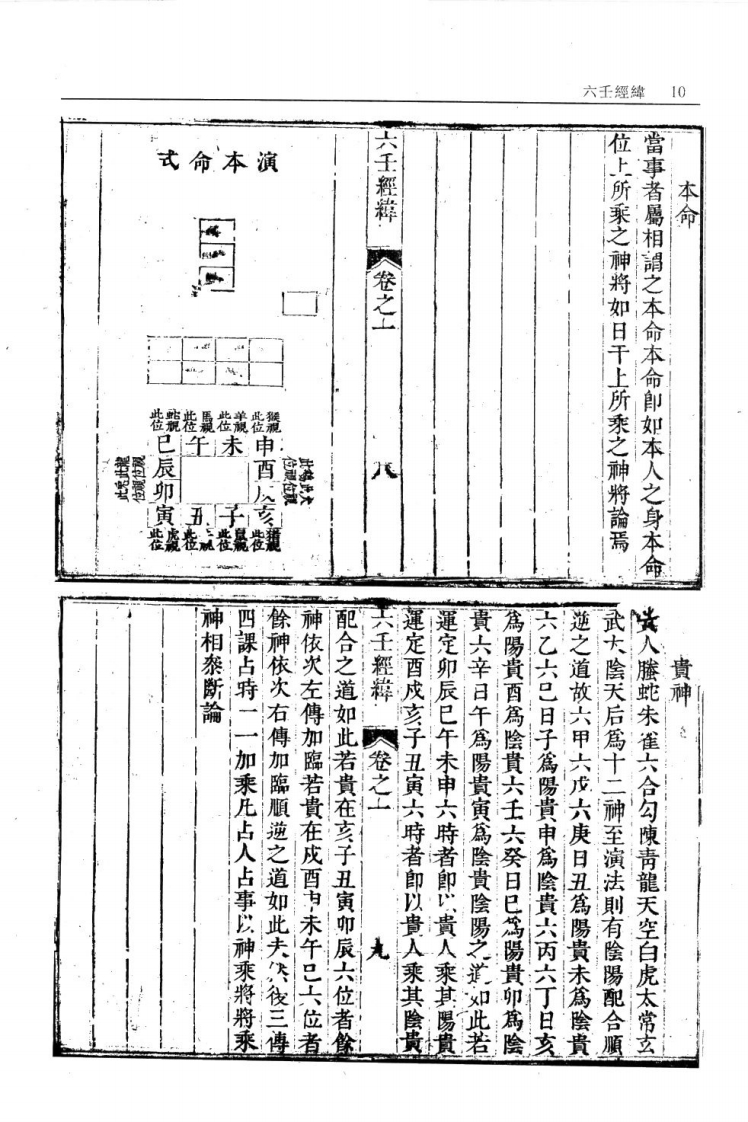 六壬經緯 10
本命
當事者屬相謂之本命本命卽如本人之身本命
位上所乘之神將如日干上所乘之神將論焉
六壬經緯
卷之上
八
演本命式
猴視此位
羊視此位
馬視此位
蛇視此位
申
未
午
巳
酉
辰
卯
亥
子
丑
寅
猪視此位
鼠視此位
虎視此位
貴神
貴人螣蛇朱雀六合勾陳青龍天空白虎太常玄
武太陰天后爲十二神至演法則有陰陽配合順
逆之道故六甲六戊六庚日丑爲陽貴未爲陰貴
六乙六己日子爲陽貴申爲陰貴六丙六丁日亥
爲陽貴酉爲陰貴六壬六癸日巳爲陽貴卯爲陰
貴六辛日午爲陽貴寅爲陰貴陰陽之道如此若
運定卯辰巳午未申六時者卽以貴人乘其陽貴
運定酉戌亥子丑寅六時者卽以貴人乘其陰貴
六壬經緯
卷之上
九
配合之道如此若貴在亥子丑寅卯辰六位者餘
神依次左傳加臨若貴在戌酉申未午巳六位者
餘神依次右傳加臨順逆之道如此夫然後三傳
四課占時一一加乘凡占人占事以神乘將將乘
神相叅斷論